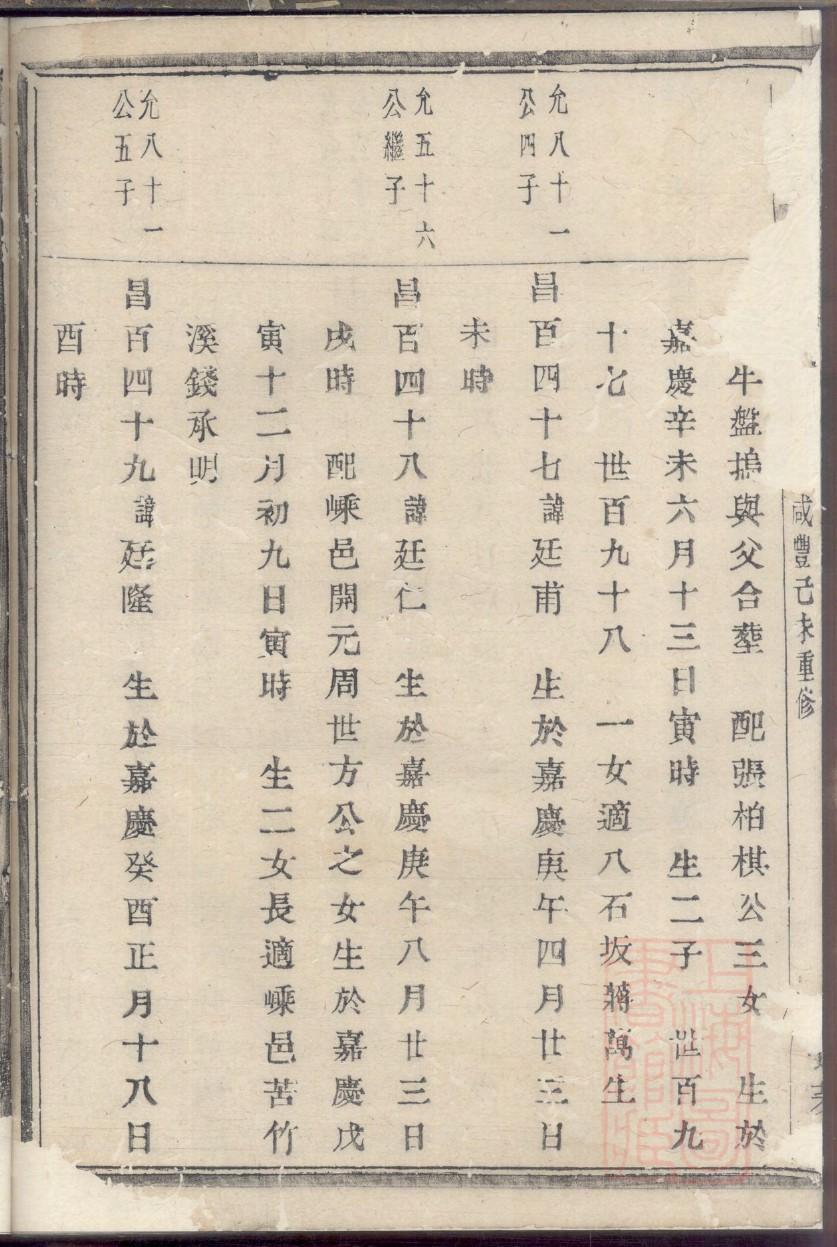 咸豐己未重修
牛盤塢與父合塟　配張柏棋公三女　生於
嘉慶辛未六月十三日寅時　生二子　世百九
十七　世百九十八　一女適八石坂蔣萬生
允八十一
公四子
昌百四十七諱廷甫　生於嘉慶庚午四月廿三日
未時
允五十六
公繼子
昌百四十八諱廷仁　生於嘉慶庚午八月廿三日
戌時　配嵊邑開元周世方公之女生於嘉慶戊
寅十二月初九日寅時　生二女長適嵊邑苦竹
溪錢承明
允八十一
公五子
昌百四十九諱廷隆　生於嘉慶癸酉正月十八日
酉時